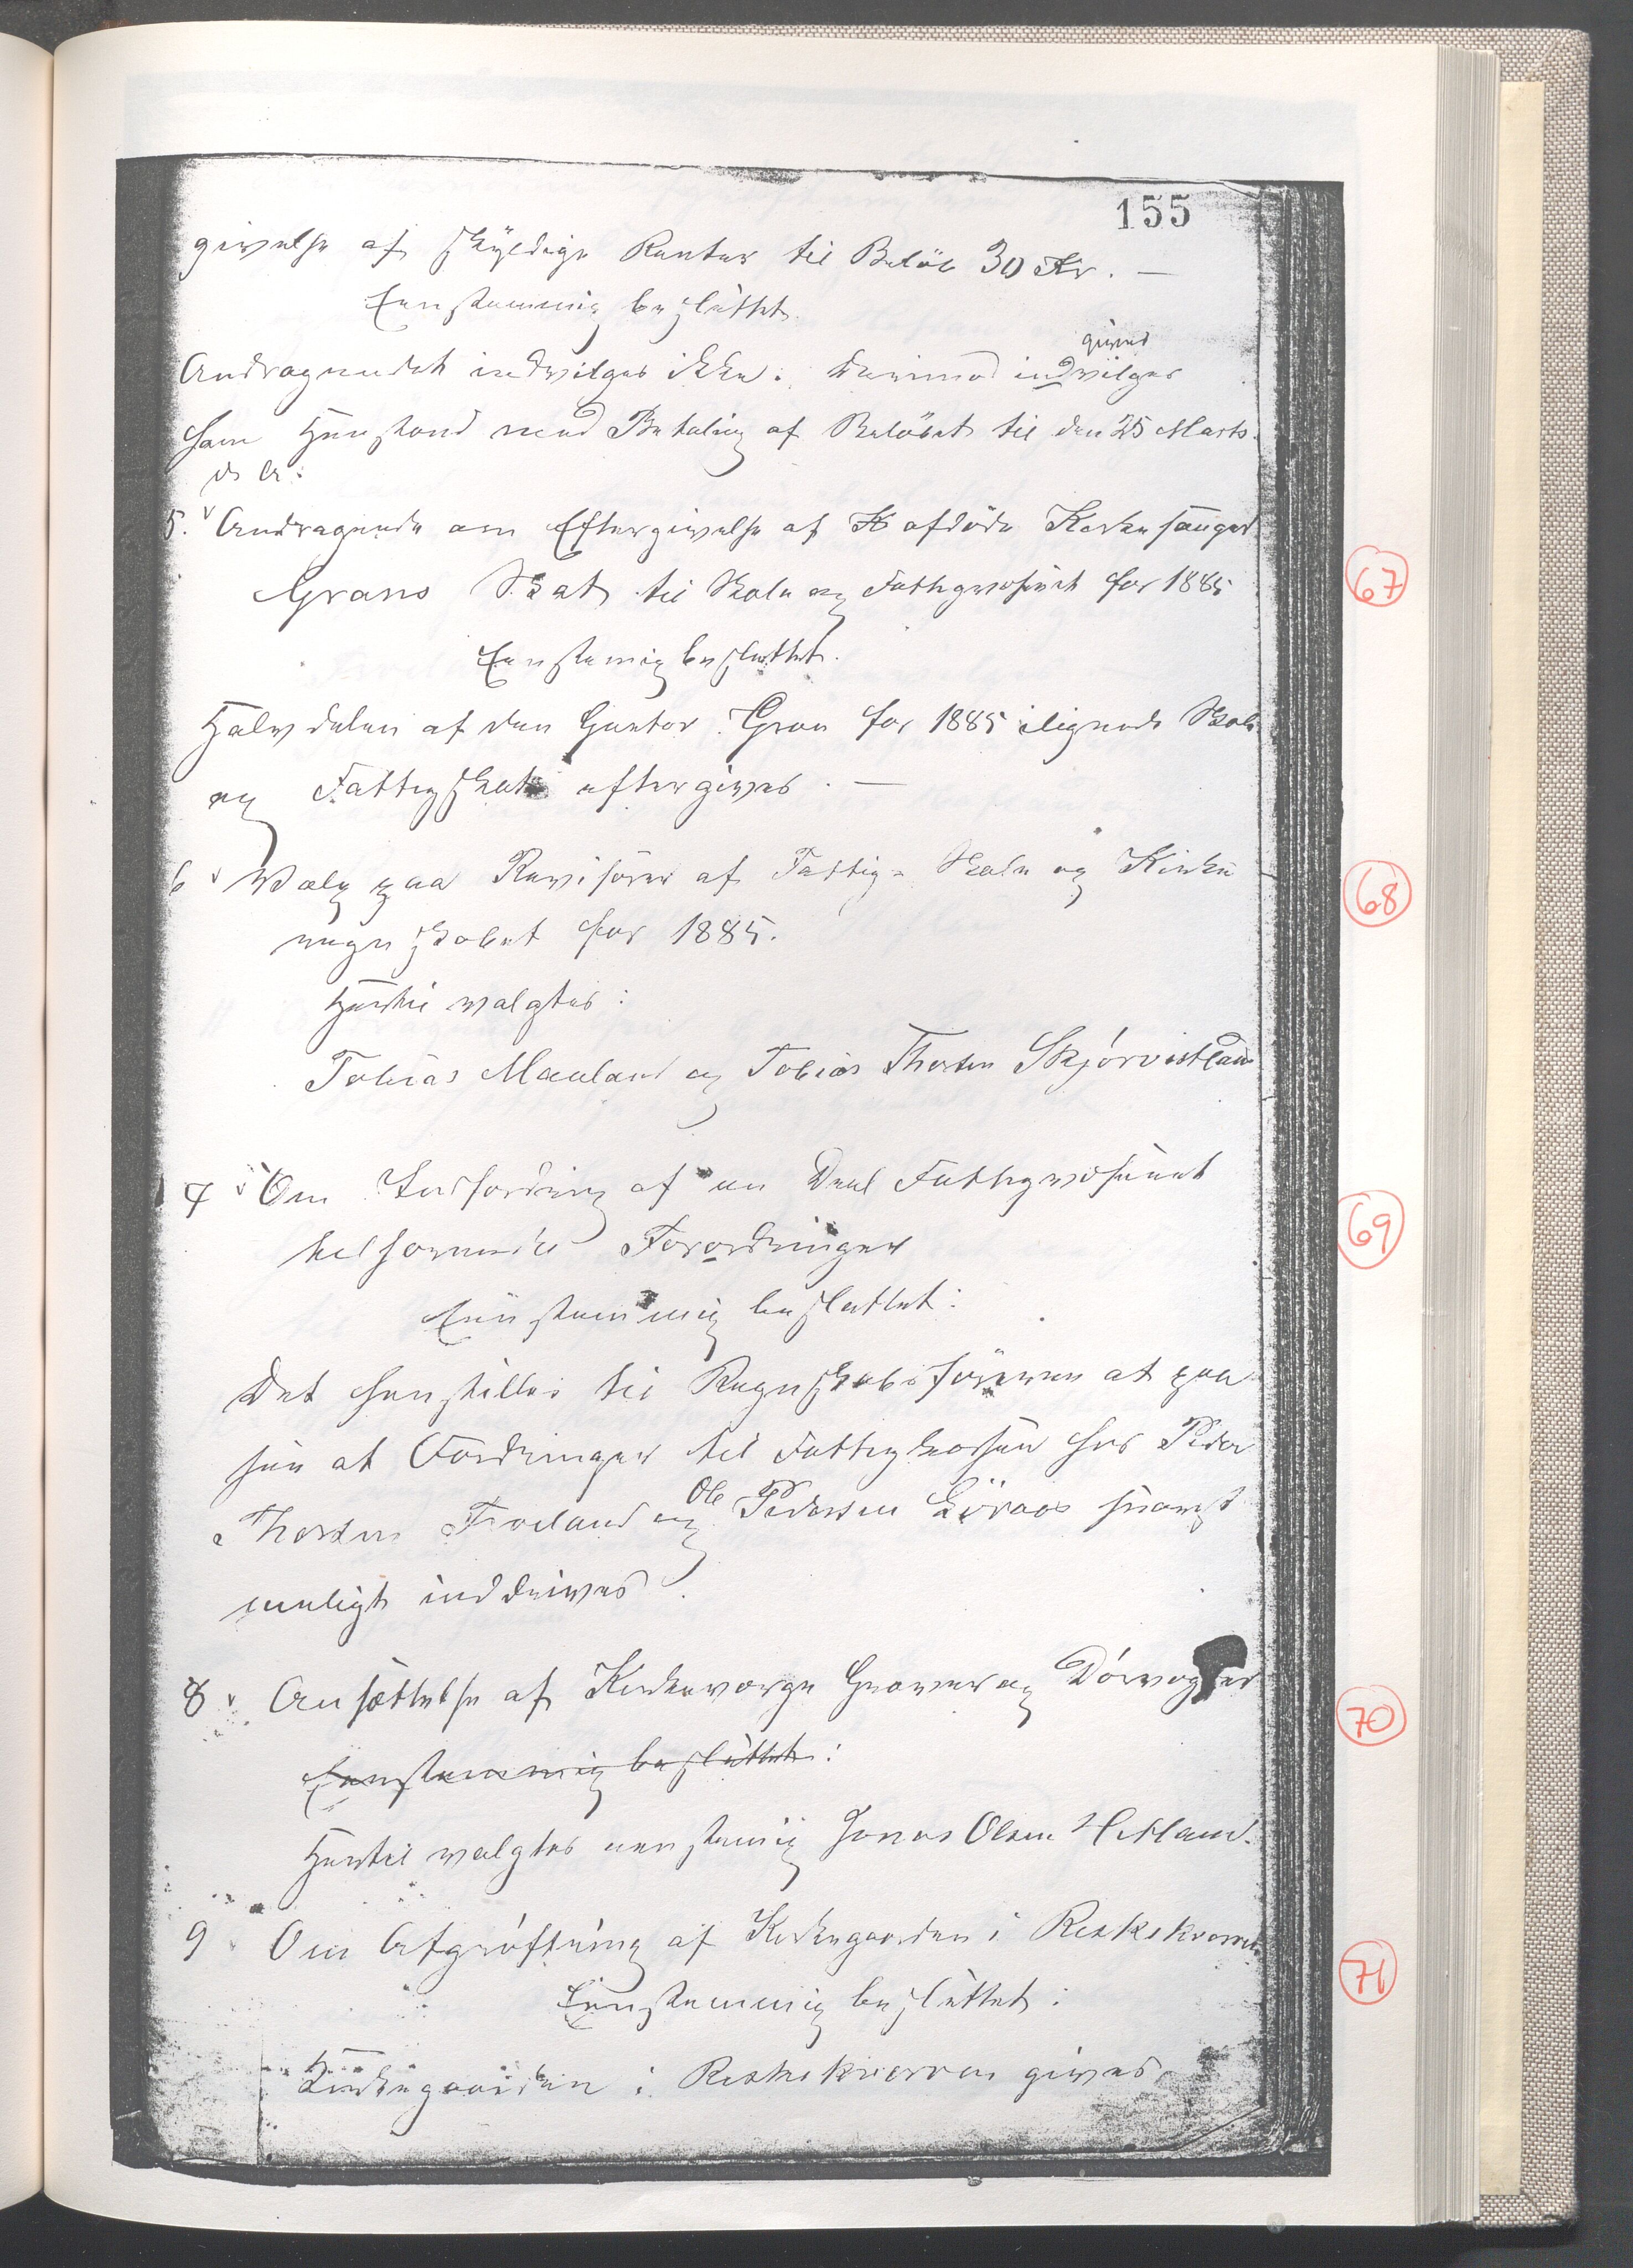 155
givelse af skyldige Renter til Beløb 30 Kr. —
Eenstemmig besluttet
gives
Andragendet indvilges ikke. Derimod indvilges
ham Henstand med Betaling af Beløbet til den 25 Marts
d A:
5. Andragende om Eftergivelse af afdøde Kirkesanger
Grans Skat til Skole og Fattigvæsenet for 1885
Eenstemig besluttet.
Halvdelen af den Cantor Gran for 1885 ilignede Skole
og Fattigskat eftergives. —
6 Valg paa Revisorer af Fattig- Skole og Kirke
regnskabet for 1885.
Hertil valgtes:
Tobias Mauland og Tobias Thorsen Skjørvistad
7 Om Indfordring af en Deel Fattigvæsenet
tilhørende Fordringer
Eenstemmig besluttet:
Det henstilles til Regnskabsføreren at paa
see at Fordringer til Fattigkassen hos Peder
Thorsen Froeland og Ole Pedersen snarest
muligt inddrives.
8 Ansættelse af Kirkeværge Graver og Dørvogter
Eenstemmig besluttet:
Hertil valgtes eenstemig Jonas Olsen Hetland.
9 Om Afgrøftning af Kirkegaarden i Reskekverven
Eenstemmig besluttet:
Kirkegaarden i Reskekverven gives
67
68
69
70
71